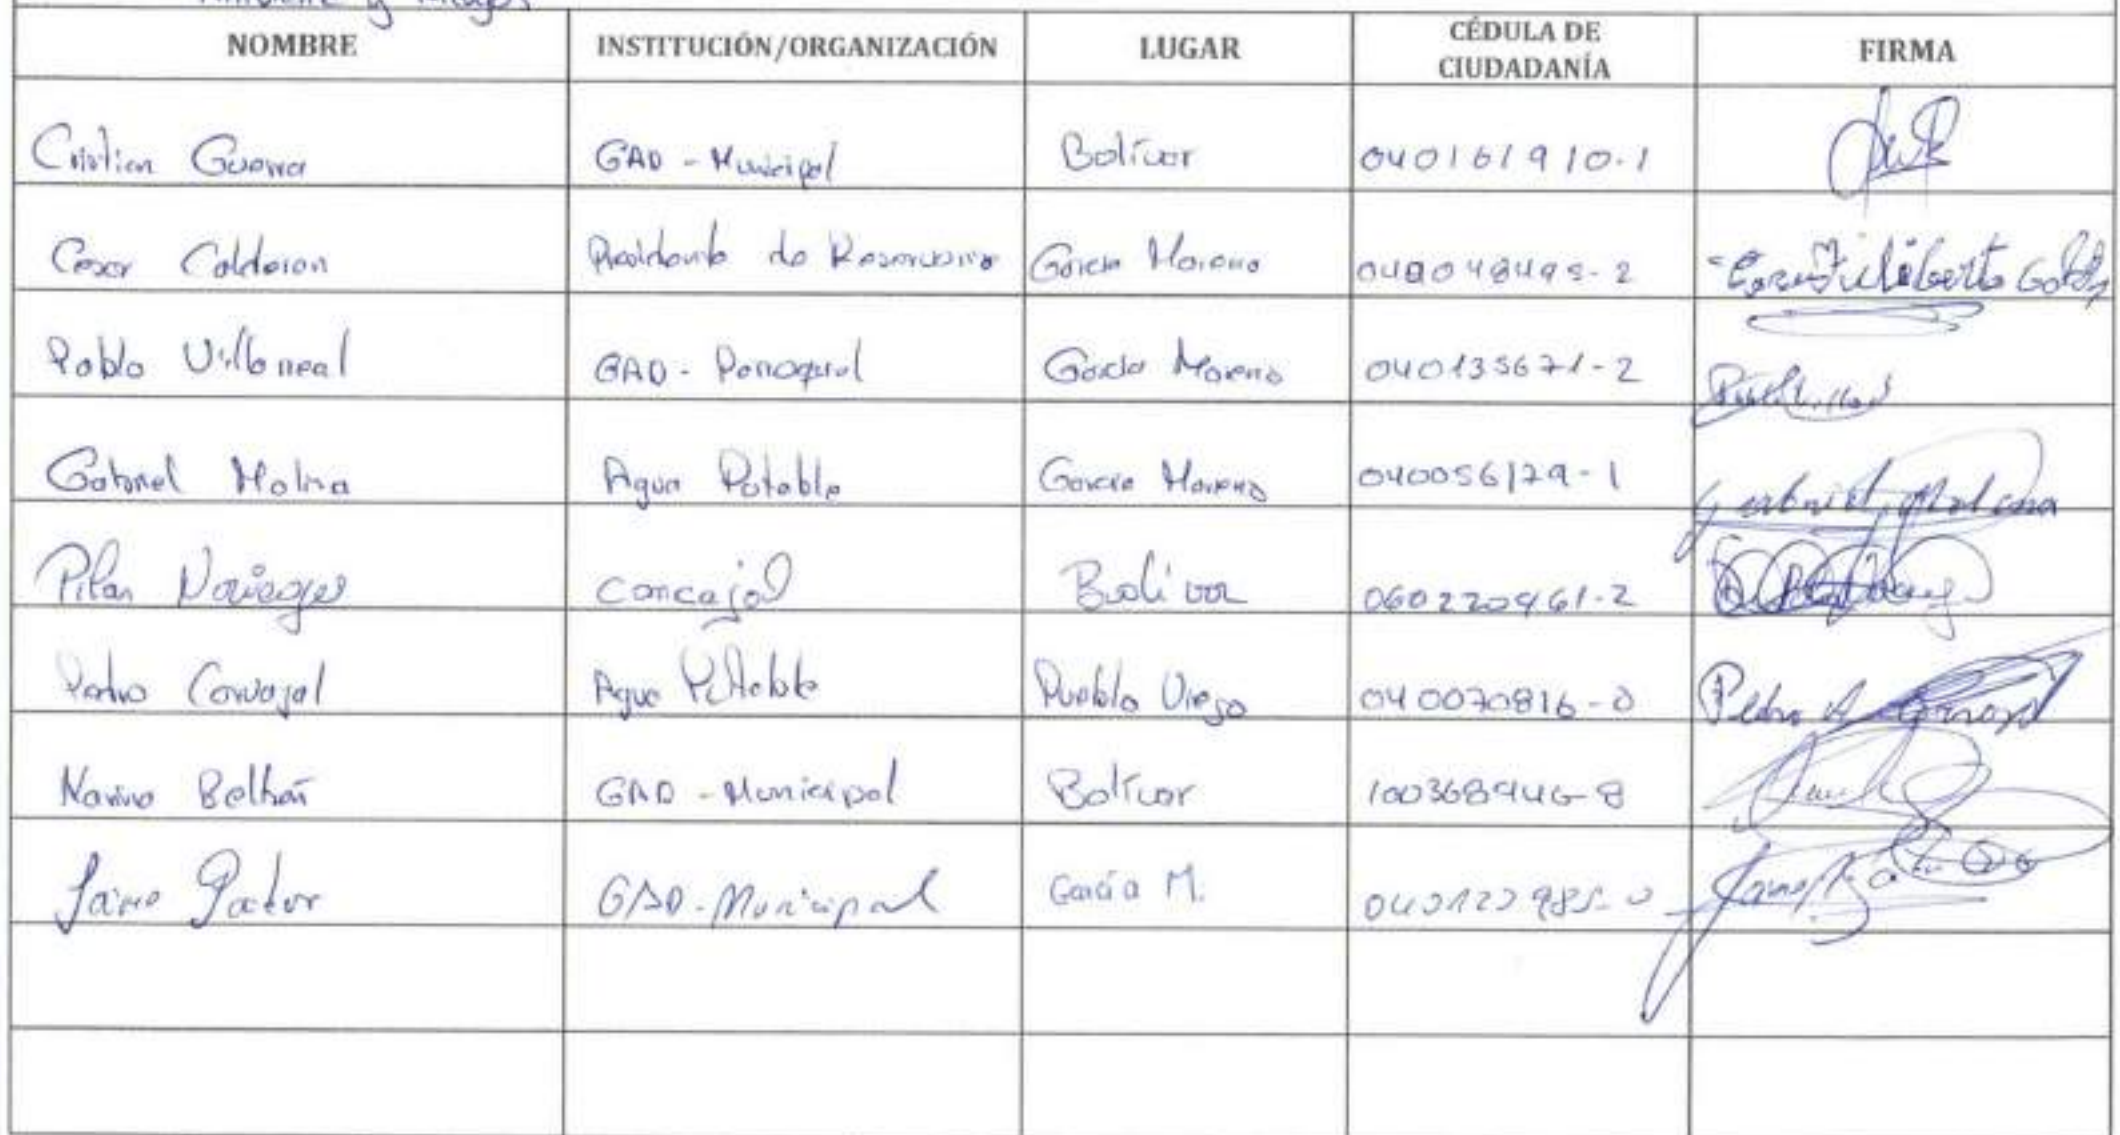 NOMBRE INSTITUCIÓN/ORGANIZACIÓN LUGAR CÉDULA DE CIUDADANÍA FIRMA
Cristian Guerra GAD - Municipal Bolívar 040161910-1
Cesar Calderon Presidente de Reservorio García Moreno
Pablo Villarreal GAD - Parroquial García Moreno 040135671-2
Gabriel Molina Agua Potable García Moreno 040056129-1 Gabriel Molina
Pilar Noriega Concejal Bolívar 060220961-2
Pedro Carvajal Agua Potable Pueblo Viejo 040070816-0 Pedro A
Beltrán GAD - Municipal Bolívar 100368946-8
Jaime GAD - Municipal García M.